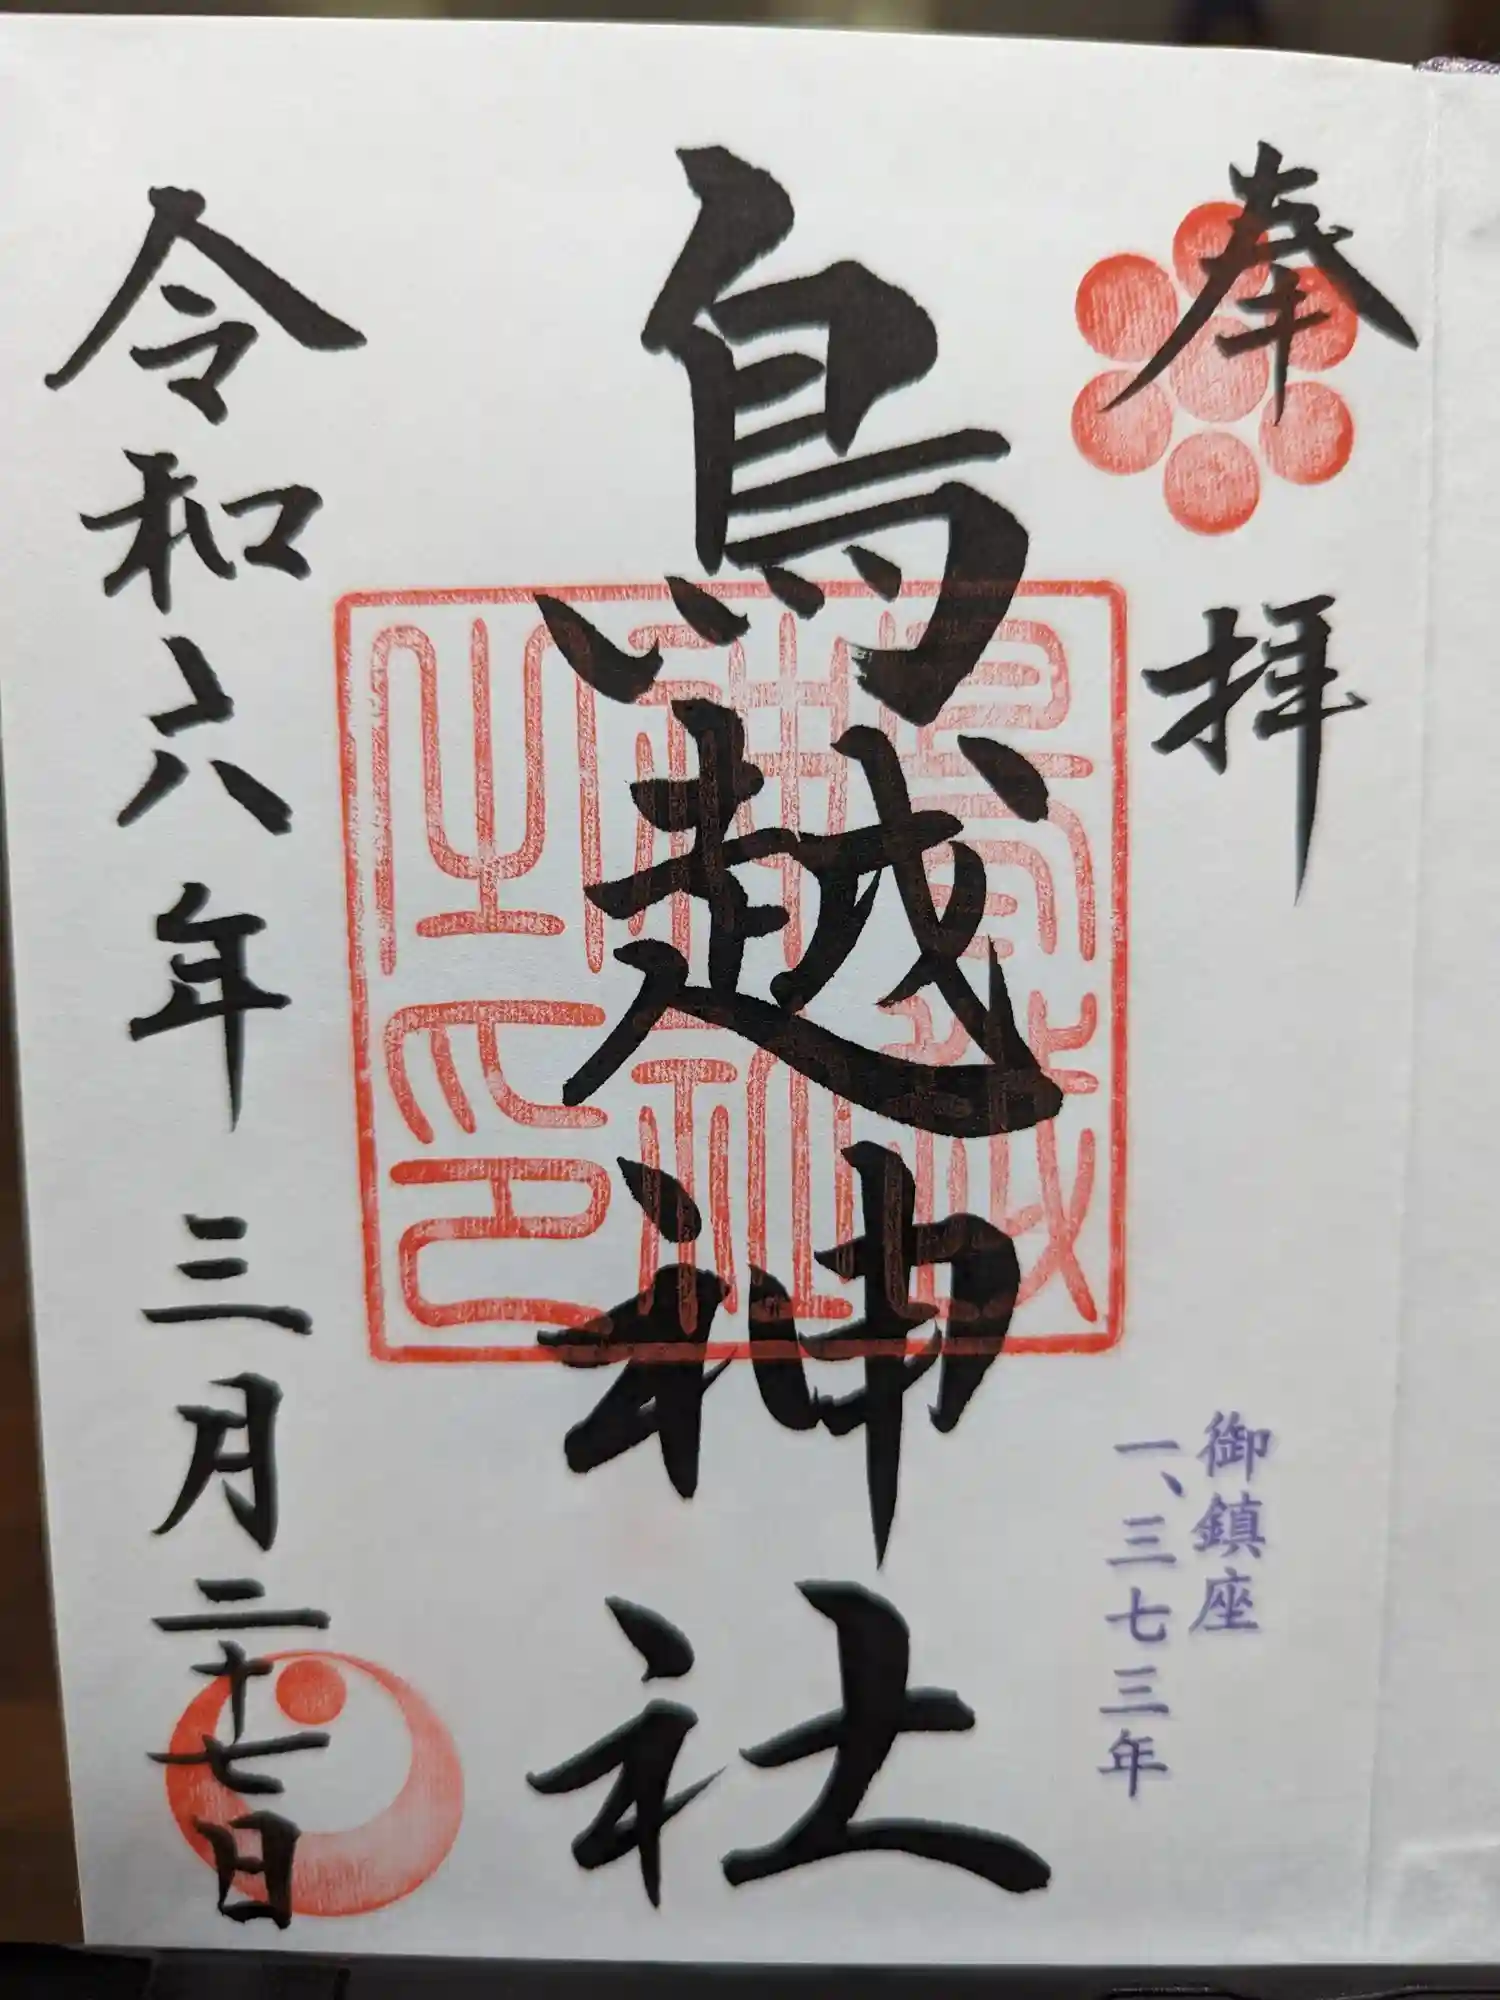 奉拝
御鎮座
一、三七三年
鳥越神社
鳥越神社之印
令和六年三月二十七日